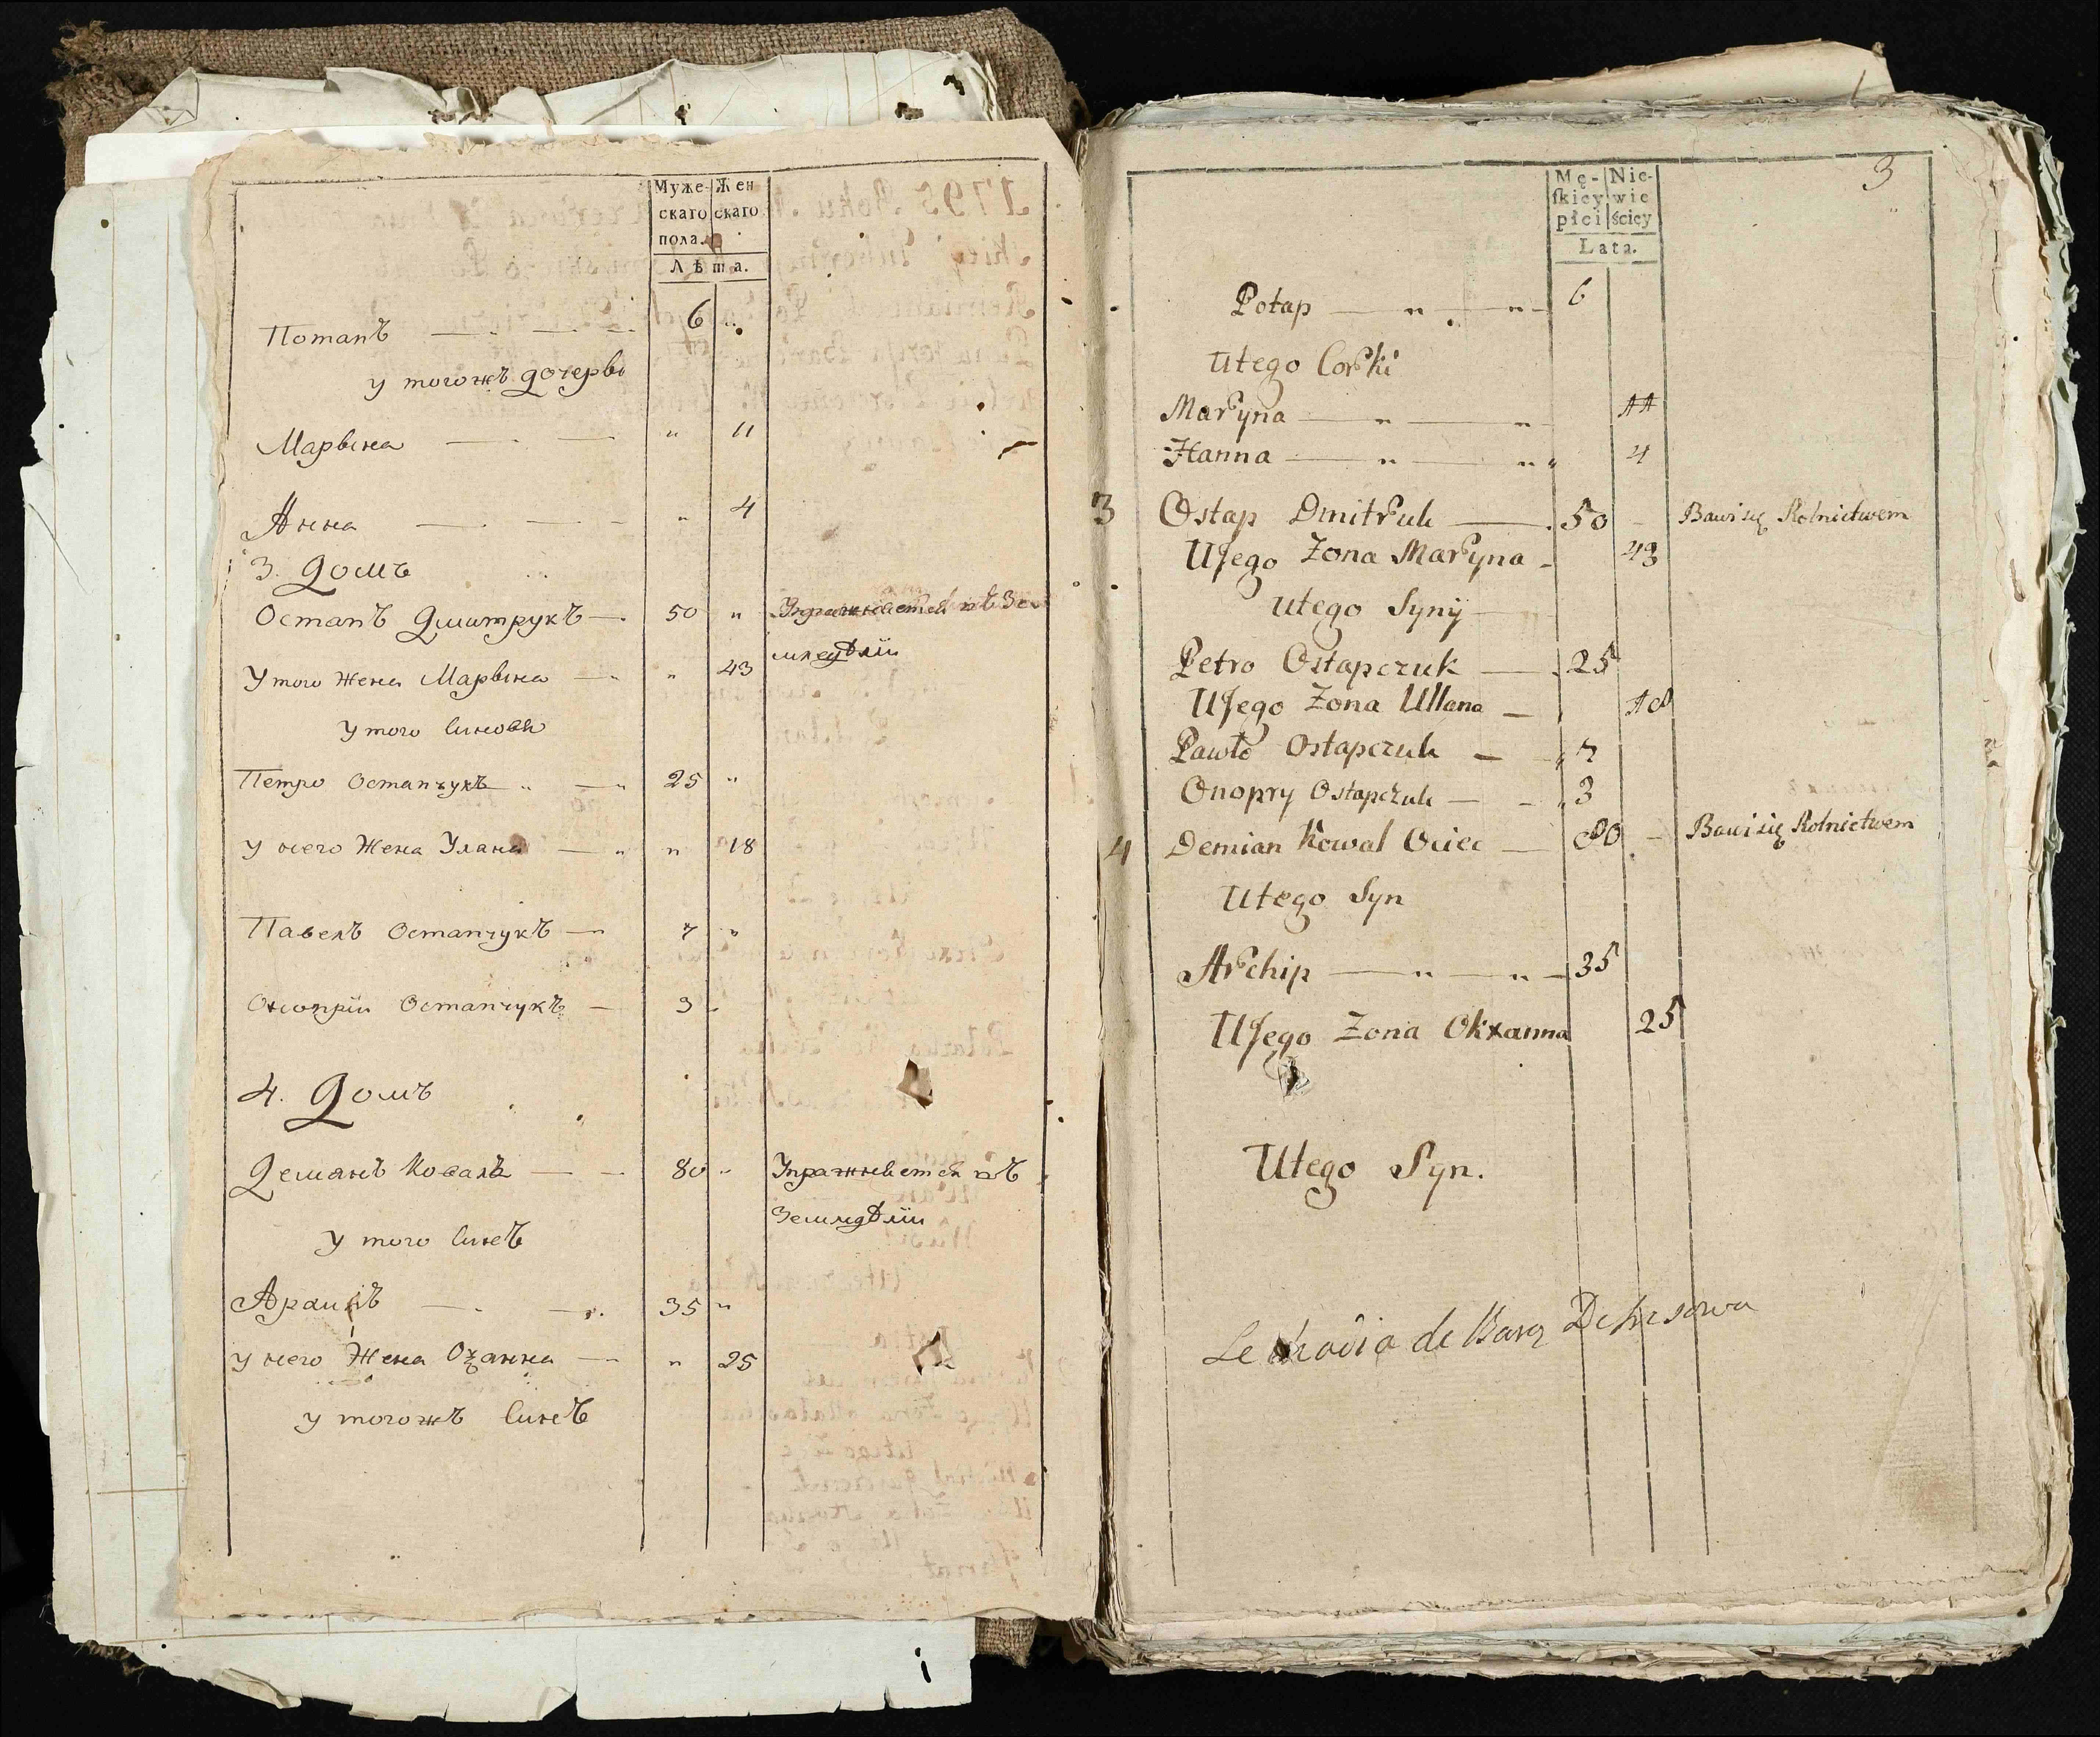 Муже- Жен
скаго скаго
пола.
Лѣта.
Потапъ — — — 6 "
у тогожъ дочеры
Марына — — " 11
Анна — — — " 4
3. Домъ
Остапъ Дмитрукъ — 50 " Упражняется въ Зе
мледѣліи
У того Жена Марына — " 43
У того Синовя
Петро Остапчукъ " — 25 "
у него Жена Улана — " 18
Павелъ Остапчукъ — 7 "
Онопрій Остапчукъ — 3 "
4. Домъ
Демянъ Коваль — — 80 " Упражняется въ
Земледѣліи
у того Синъ
Архипъ — — 35 "
у него Жена Оѯанна — " 25
у тогожъ Синъ
3
Mę- Nie-
ſkiey wie
płci ściey
Lata.
Potap — " — " — 6
Utego Corki
Maryna — " — " 11
Hanna — " — " 4
3 Ostap Dmitruk — 50 - Bawi się Rolnictwem
Uſego Zona Maryna - 43
Utego Syny
Petro Ostapczuk — 25
Uſego Zona Ullana — 18
Pawło Ostapczuk — 7
Onopry Ostapczuk — 3
4 Demian Kowal Ociec — 80 - Bawi się Rolnictwem
Utego Syn
Archip — " — " — 35
Uſego Zona Okxanna 25
Utego Syn.